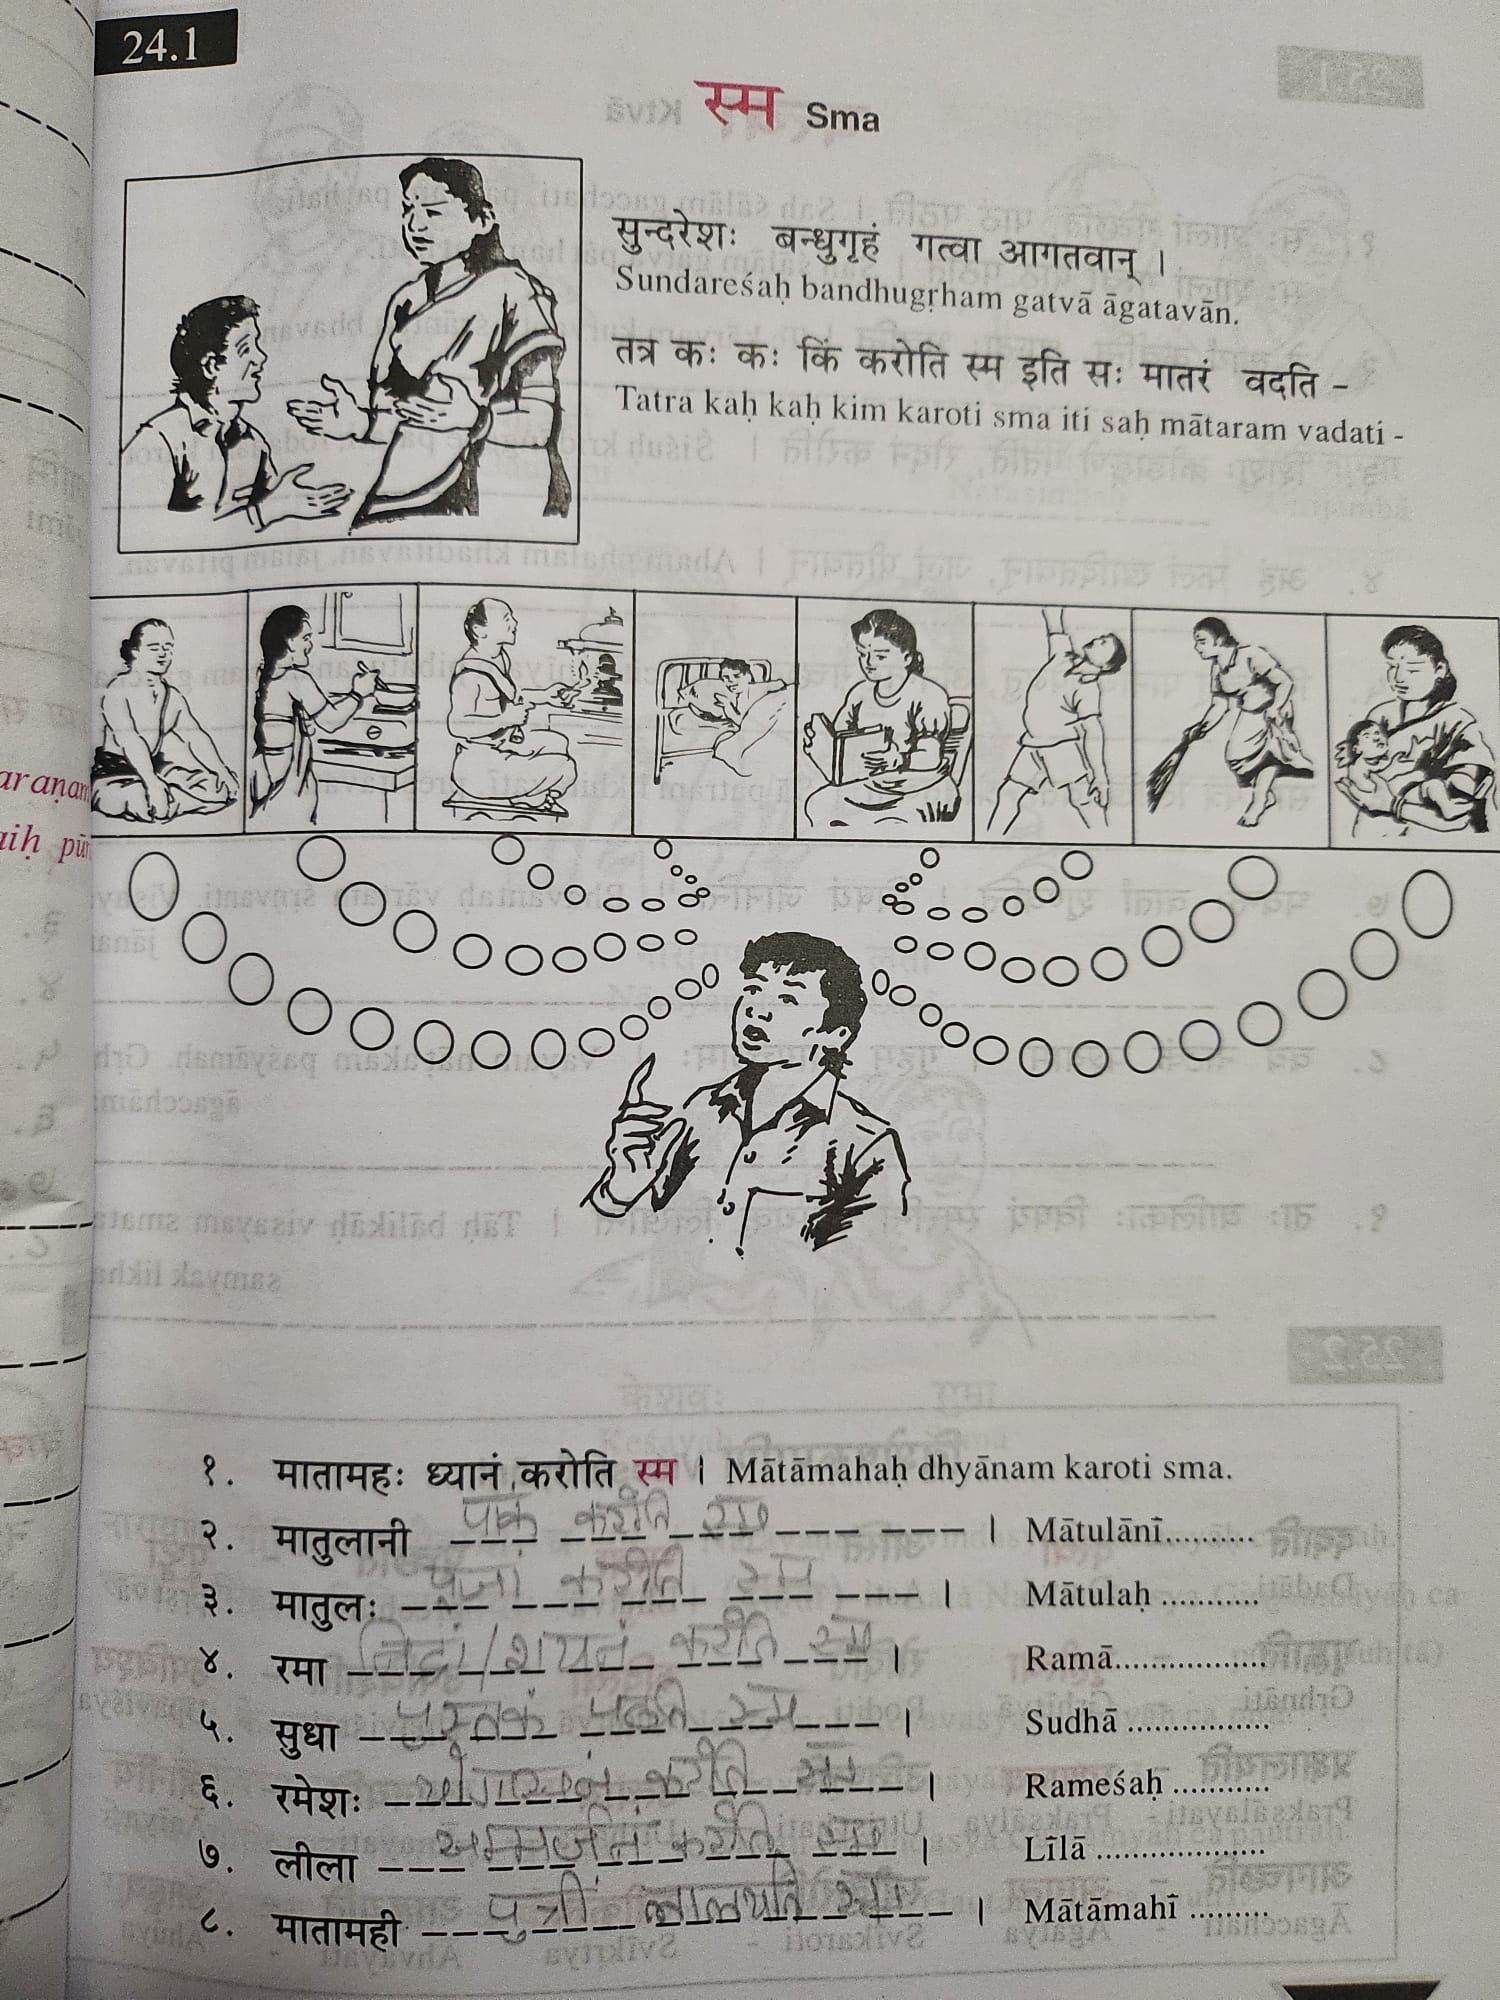 24.1
स्म Sma
सुन्दरेशः बन्धुगृहं गत्वा आगतवान् ।
Sundareśaḥ bandhugṛham gatvā āgatavān.
तत्र कः कः किं करोति स्म इति सः मातरं वदति -
Tatra kaḥ kaḥ kim karoti sma iti saḥ mātaram vadati -
१. मातामहः ध्यानं करोति स्म । Mātāmahaḥ dhyānam karoti sma.
२. मातुलानी पाकं करोति स्म । Mātulānī..........
३. मातुलः पूजां करोति स्म । Mātulaḥ ...........
४. रमा निद्रां/शयनं करोति स्म । Ramā..................
५. सुधा पुस्तकं पठति स्म । Sudhā .................
६. रमेशः करोति स्म । Rameśaḥ ...........
७. लीला करोति स्म । Līlā ....................
८. मातामही पुत्रीं लालयति स्म । Mātāmahī .........